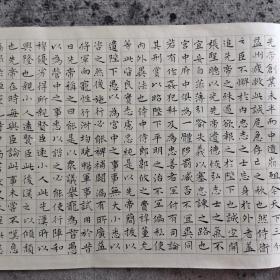 帝創業未半而中道崩殂今天下三分
益州疲敝此誠危急存亡之秋也然侍衛
之臣不懈於內忠志之士忘身於外者蓋
追先帝之殊遇欲報之於陛下也誠宜開
張聖聽以光先帝遺德恢弘志士之氣不
宜妄自菲薄引喻失義以塞忠諫之路也
宮中府中俱為一體陟罰臧否不宜異同
若有作姦犯科及為忠善者宜付有司論
其刑賞以昭陛下平明之治不宜偏私使
內外異法也侍中侍郎郭攸之費禕董允
等此皆良實志慮忠純是以先帝簡拔以
遺陛下愚以為宮中之事事無大小悉以
咨之然後施行必能裨補闕漏有所廣益
將軍向寵性行淑均曉暢軍事試用於昔
日先帝稱之曰能是以眾議舉寵為督愚
以為營中之事悉以咨之必能使行陣和
穆優劣得所親賢臣遠小人此先漢所以
興隆也親小人遠賢臣此後漢所以傾頹
也先帝在時每與臣論此事未嘗不歎息